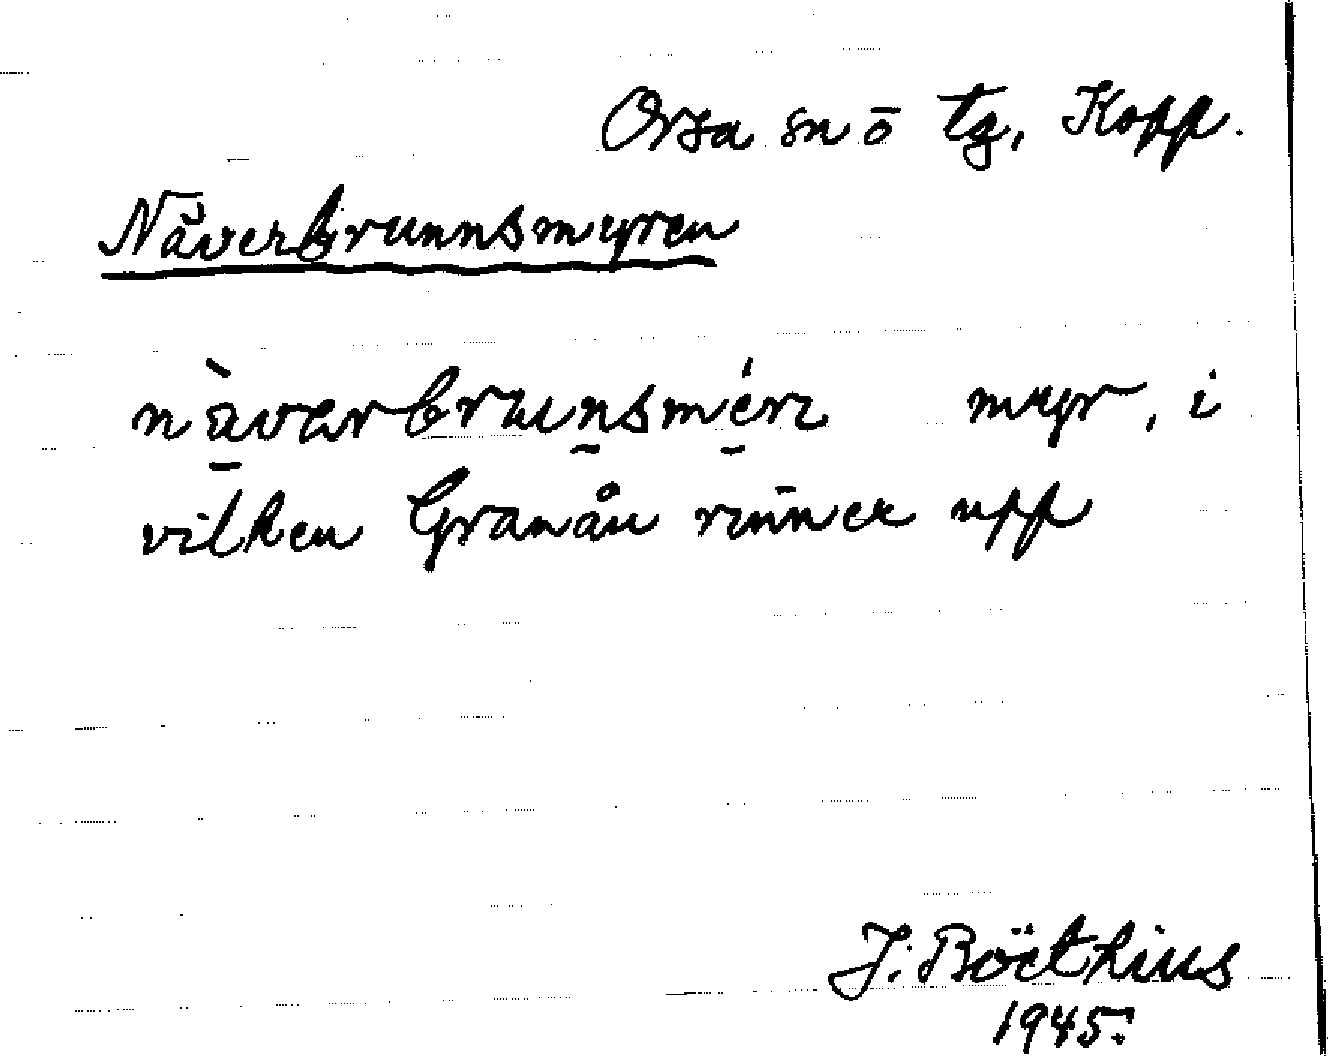 Orsa sn o tg, Kopp.
Näverbrunnsmyren
nàvərbrunsmérɩ myr, i
vilken Granån rinner upp
J. Boëthius
1945.